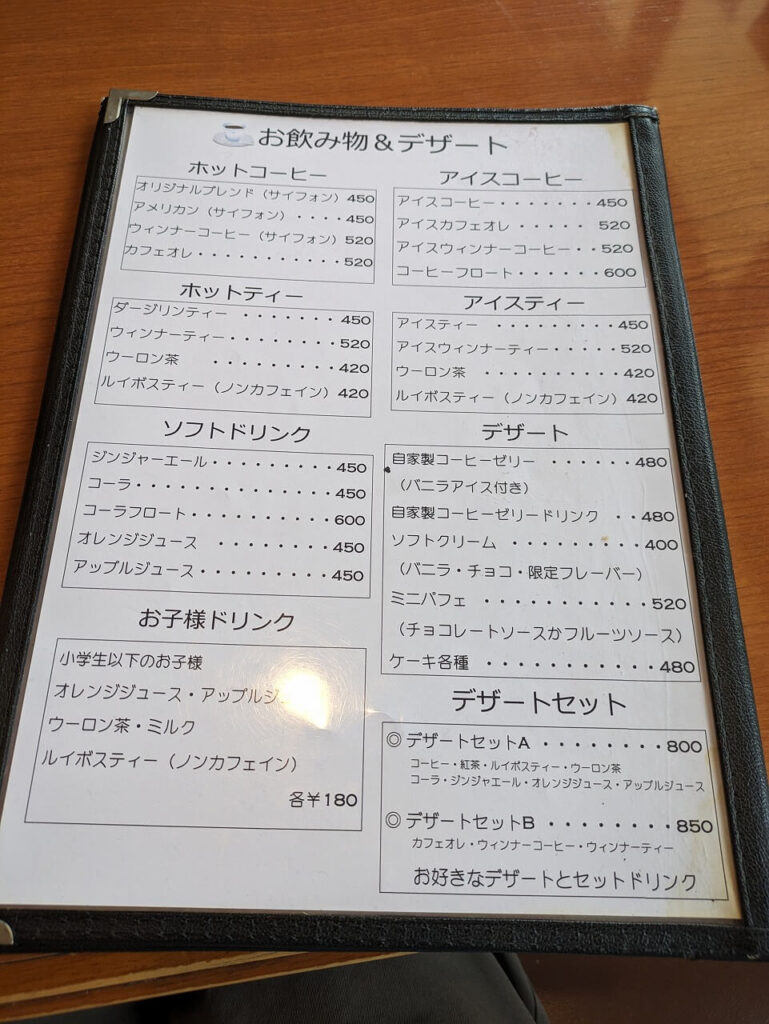 お飲み物＆デザート
ホットコーヒー
オリジナルブレンド（サイフォン）450
アメリカン（サイフォン）・・・・450
ウィンナーコーヒー（サイフォン）520
カフェオレ・・・・・・・・・・・520
ホットティー
ダージリンティー ・・・・・・・450
ウィンナーティー・・・・・・・・520
ウーロン茶 ・・・・・・・・・420
ルイボスティー（ノンカフェイン）420
ソフトドリンク
ジンジャーエール・・・・・・・・・450
コーラ・・・・・・・・・・・・・450
コーラフロート・・・・・・・・・・600
オレンジジュース ・・・・・・・・450
アップルジュース・・・・・・・・・450
お子様ドリンク
小学生以下のお子様
オレンジジュース・アップルジ
ウーロン茶・ミルク
ルイボスティー（ノンカフェイン）
各￥180
アイスコーヒー
アイスコーヒー・・・・・・・450
アイスカフェオレ・・・・・ 520
アイスウィンナーコーヒー・・520
コーヒーフロート・・・・・・600
アイスティー
アイスティー ・・・・・・・・・450
アイスウィンナーティー・・・・・520
ウーロン茶 ・・・・・・・・・・420
ルイボスティー（ノンカフェイン）420
デザート
自家製コーヒーゼリー ・・・・・・480
（バニラアイス付き）
自家製コーヒーゼリードリンク ・・480
ソフトクリーム ・・・・・・・・・400
（バニラ・チョコ・限定フレーバー）
ミニパフェ ・・・・・・・・・・・520
（チョコレートソースかフルーツソース）
ケーキ各種 ・・・・・・・・・・・480
デザートセット
◎デザートセットA ・・・・・・・・800
コーヒー・紅茶・ルイボスティー・ウーロン茶
コーラ・ジンジャエール・オレンジジュース・アップルジュース
◎デザートセットB ・・・・・・・・850
カフェオレ・ウィンナーコーヒー・ウィンナーティー
お好きなデザートとセットドリンク